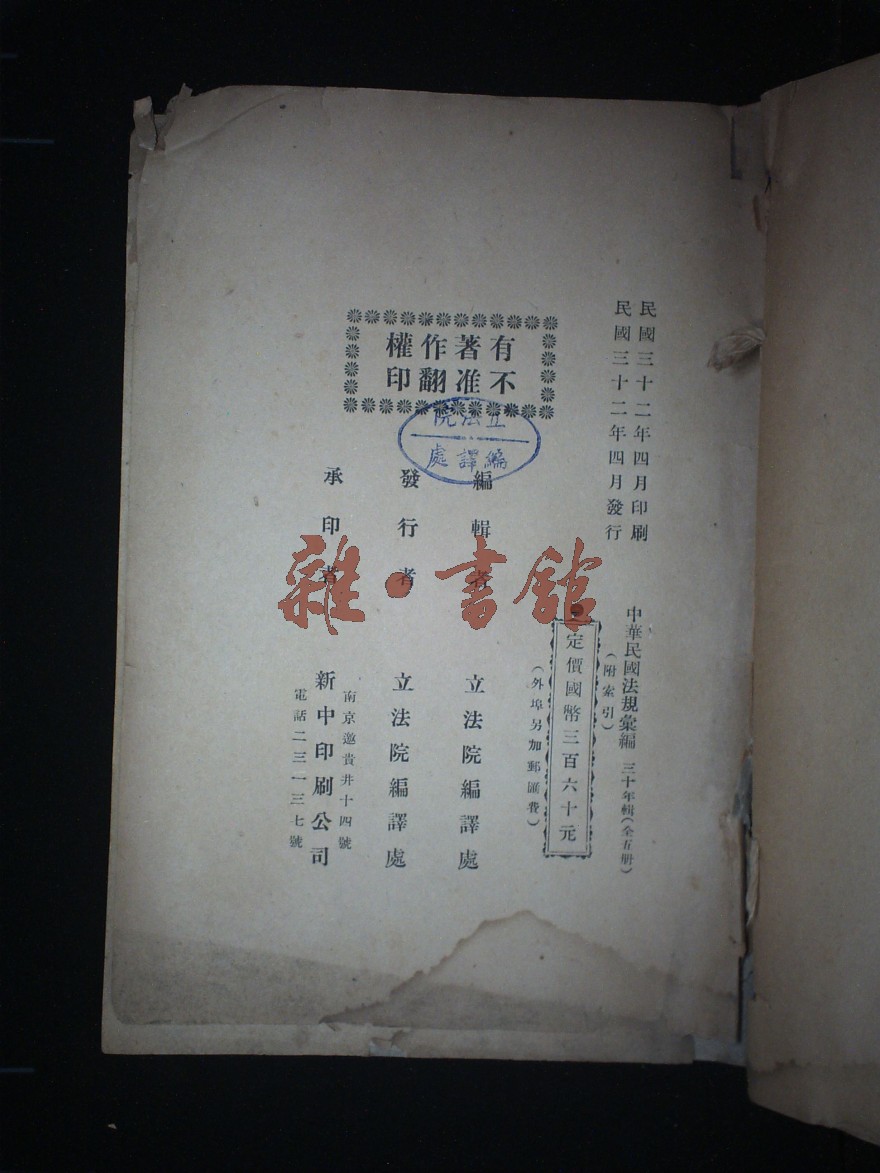 民國三十二年四月印刷
民國三十二年四月發行
中華民國法規彙編 三十年輯(全五册)
(附索引)
定價國幣三百六十元
(外埠另加郵匯費)
有著作權
不准翻印
立法院
編譯處
編輯者 立法院編譯處
發行者 立法院編譯處
承印者 新中印刷公司
南京邀貴井十四號
電話二三一三七號
雜·書館